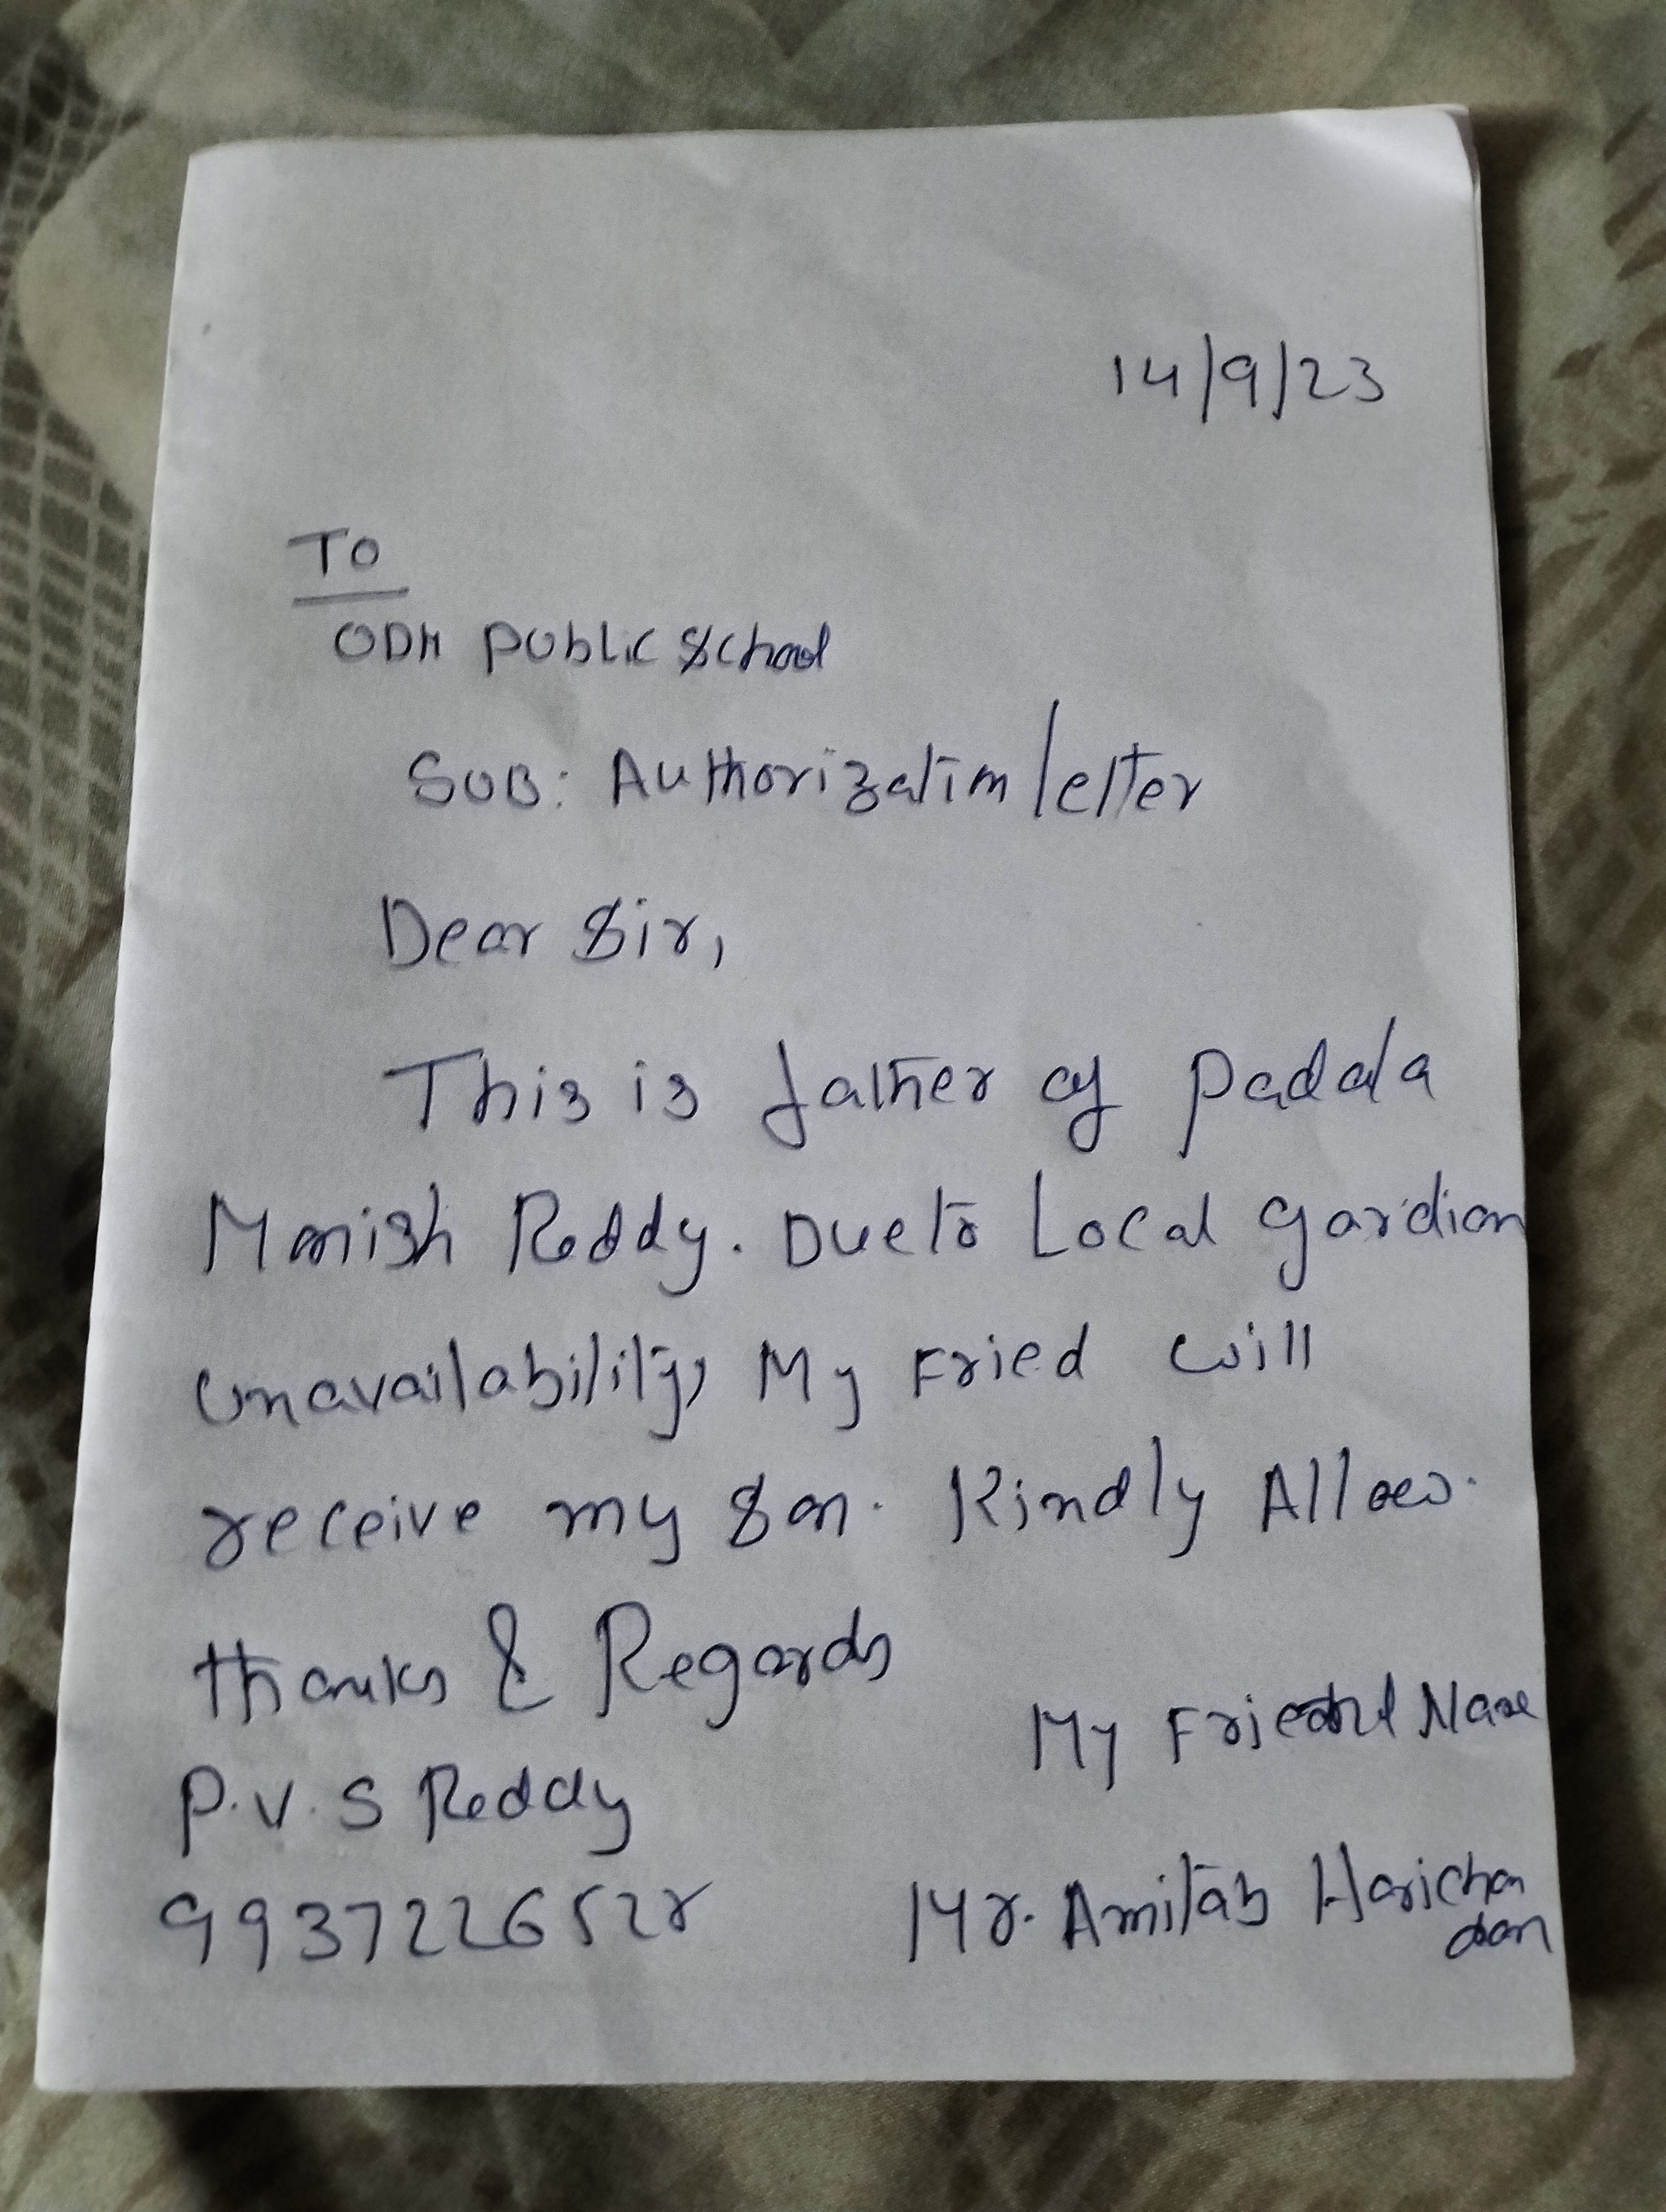 14/9/23
To
ODM Public School
SUB: Authorization letter
Dear Sir,
This is father of Padala
Manish Reddy. Due to Local gardian
unavailability, My Fried will
receive my son. Kindly Allow.
thanks & Regards
My Friend Name
P.V.S Reddy
Mr. Amitab Harichan
dan
993722652